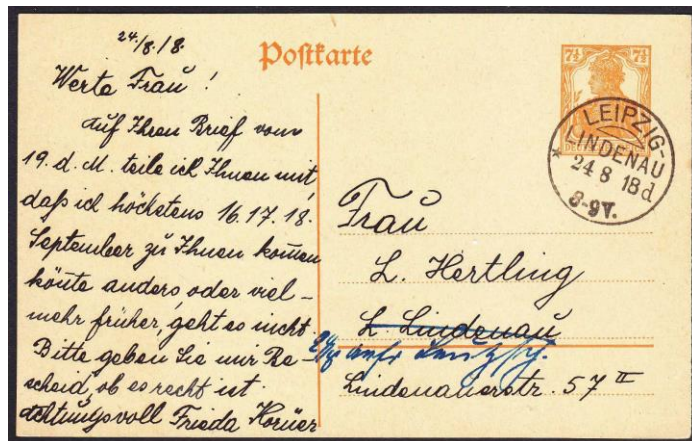 24/8.18.
Postkarte
7½ 7½
Werte Frau!
Auf Ihren Brief vom
19. d. M. teile ich Ihnen mit
daß ich höchstens 16.17.18.
September zu Ihnen komen
könte anders, oder viel-
mehr früher, geht es nicht.
Bitte geben Sie mir Be-
scheid, ob es recht ist
Achtungsvoll Frieda Horner
LEIPZIG-
LINDENAU
* 24 8 18 d
8-9V.
Frau
L. Hertling
L. Lindenau
Lindenauerstr. 57 II